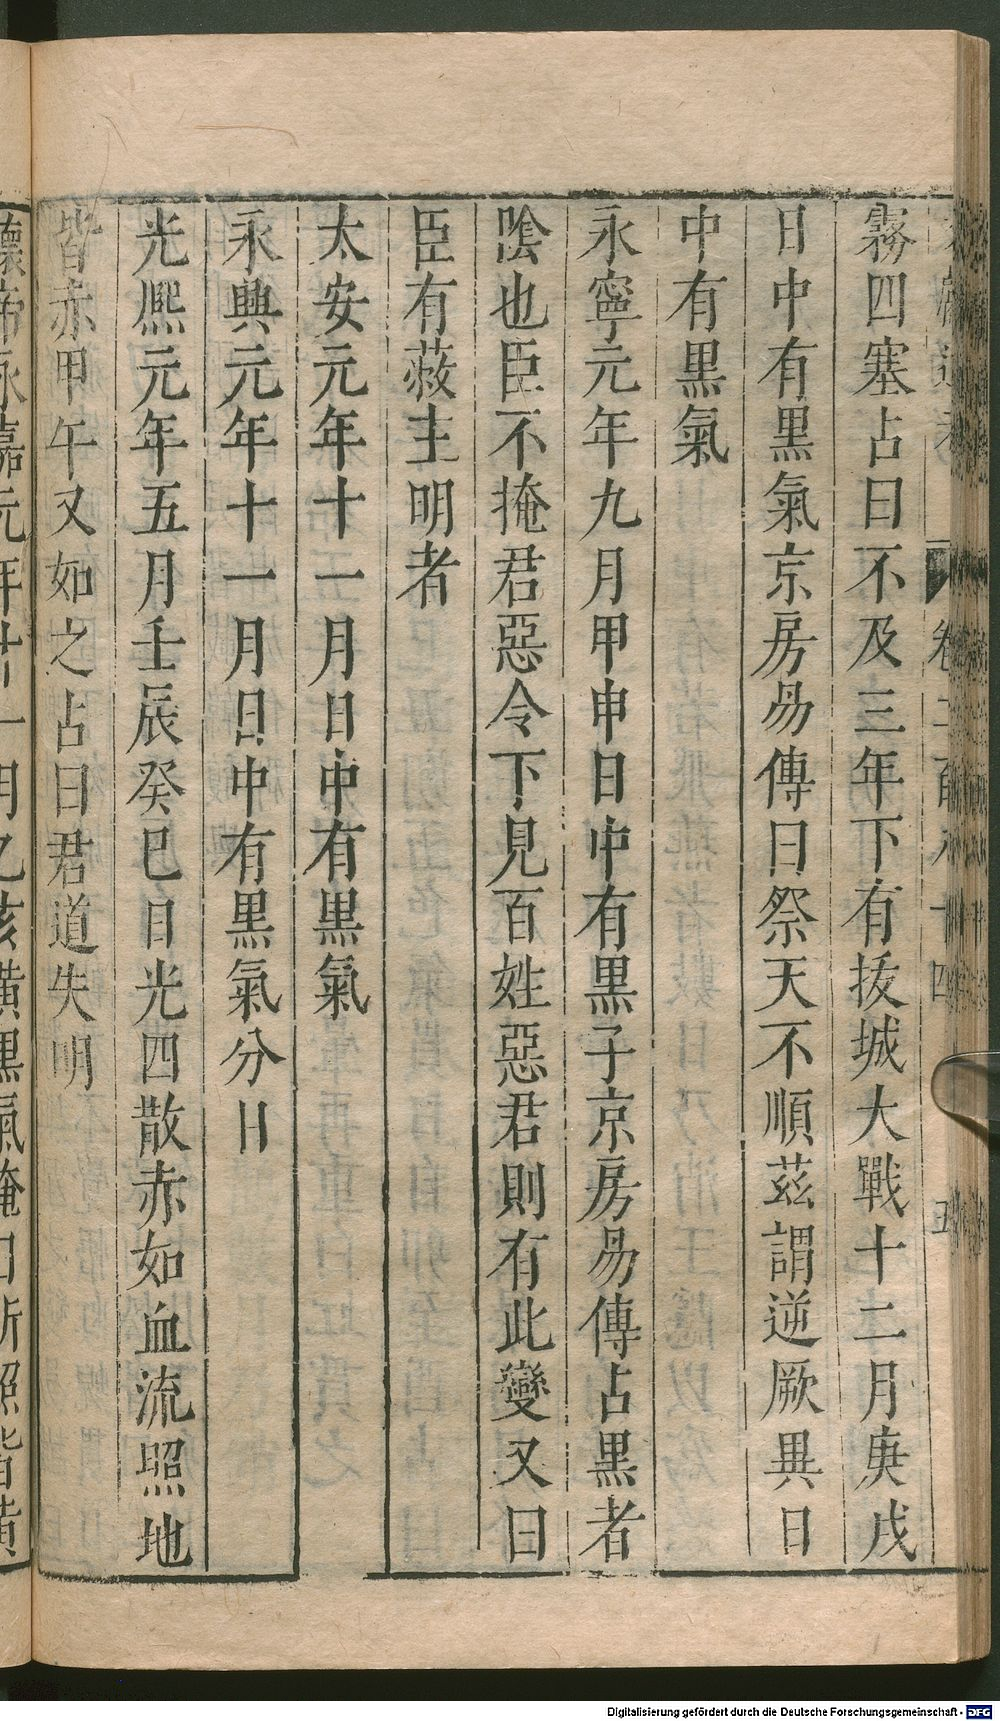 霧四塞占曰不及三年下有拔城大戰十二月庚戌
日中有黑氣京房易傳曰祭天不順茲謂逆厥異日
中有黑氣
永寧元年九月甲申日中有黑子京房易傳占黑者
陰也臣不掩君惡令下見百姓惡君則有此變又曰
臣有蔽主明者
太安元年十一月日中有黑氣
永興元年十一月日中有黑氣分日
光熙元年五月壬辰癸巳日光四散赤如血流照地
皆赤甲午又如之占曰君道失明
懷帝永嘉元年十一月乙亥黃黑氣掩日所照皆黃
Digitalisierung gefördert durch die Deutsche Forschungsgemeinschaft - DFG